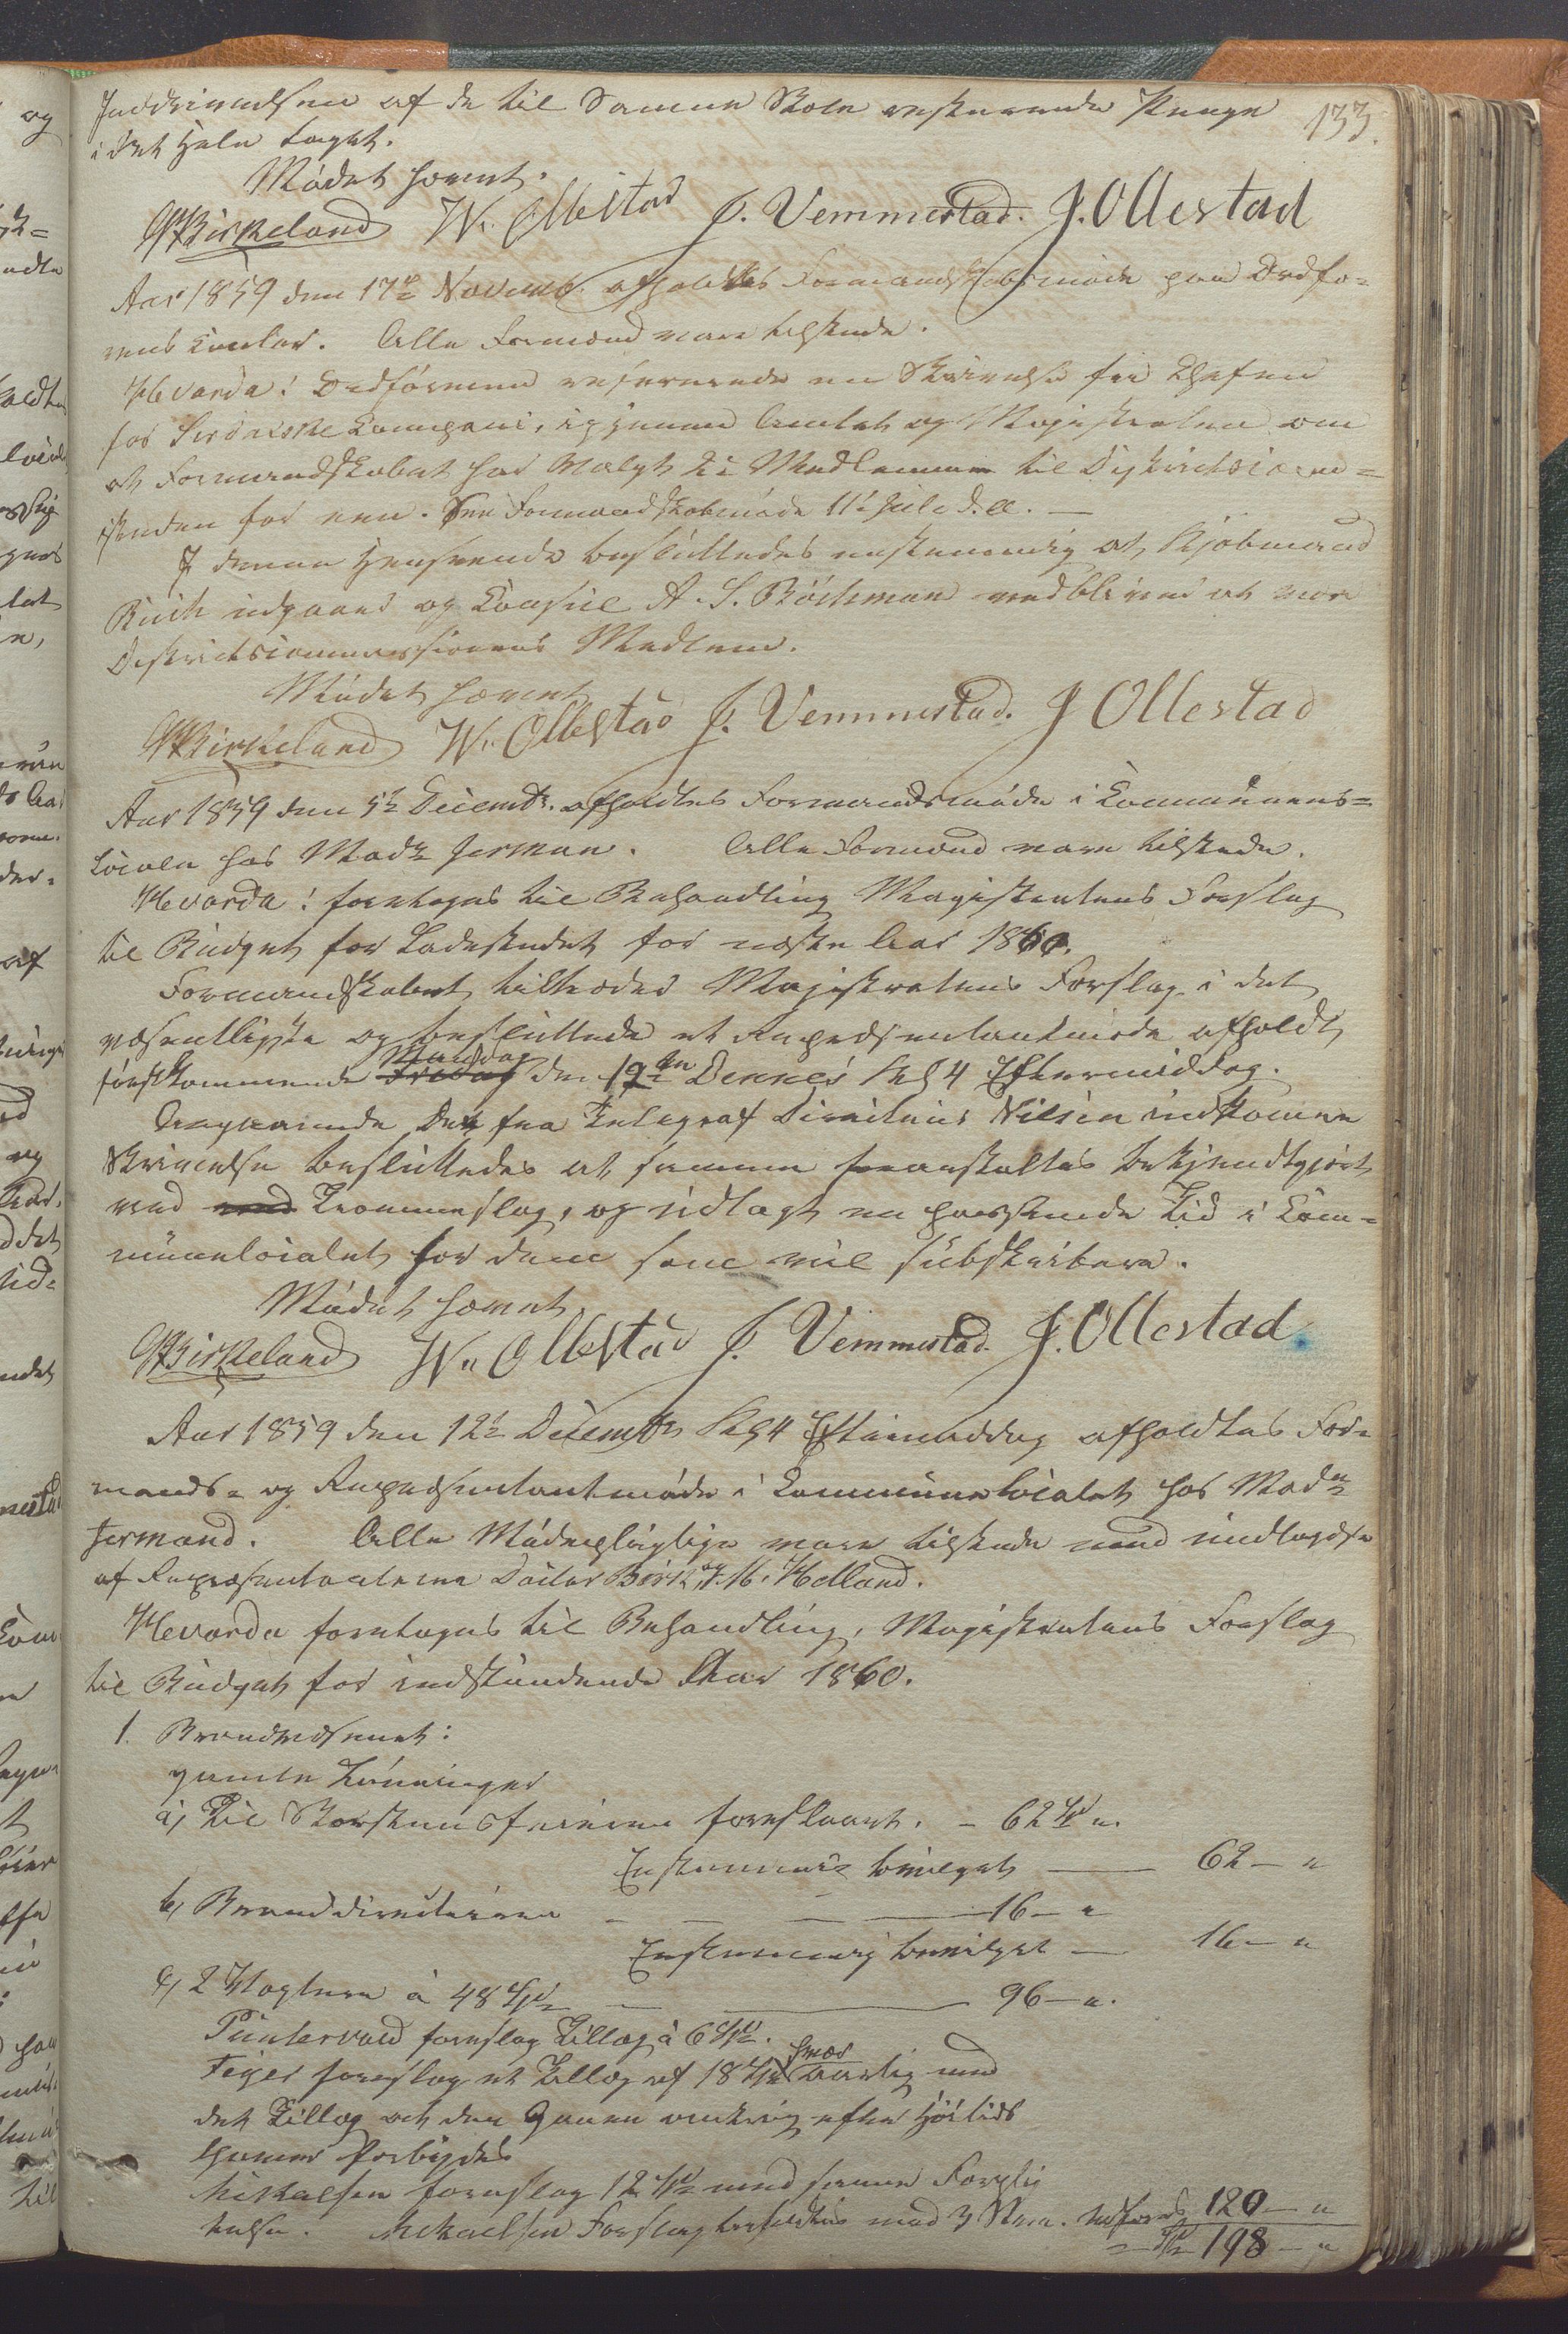 133.
Inddrivelsen af de til Samme Skole resterende Penge
i det Hele taget.
Mödet hævet.
Birkeland W. Ollestad J. Vemmestad. J. Ollestad
Aar 1859 den 17de Novemb. afholdtes Formandskabsmöde paa Ordfö-
rens Contor. Alle Formænd vare tilstede.
Hvorda: Ordföreren refererede en Skrivelse fra Chefen
for Sirdalske Compani, igjennem Amtet og Magistraten om
at Formandskabet har valgt to Medlemmer til Districtscom-
istheden for een. See Formandskabsmöde 11te Juli d. A. —
I denne Henseende besluttedes eenstemmig at Kjöbmand
Buch udgaaer og Consul A. S. Böckman vedbliver at være
Districtscommissionens Medlem.
Mödet hævet
Birkeland W. Ollestad J. Vemmestad. J Ollestad
Aar 1859 den 5te Decembr. afholdtes Formandsmöde i Communens-
Locale hos Made Jerman. Alle Formænd vare tilstede.
Hvorda: foretoges til Behandling Magistratens Forslag
til Budget for Ladestedet for næste Aar 1860.
Formandskabet tiltræder Magistratens Forslag i det
væsentligste og besluttede et Repræsentantmöde afholdt
förstkommende Fredag Mandag den 12te dennes Kl 4 Eftermiddag.
Angaaende Det fra Telegraf Directeur Nilsen indkomne
Skrivelse besluttedes at samme foranstaltes bekjendtgjort
ved med Trommeslag, og udlagt en passende Tid i Com-
munelocalet for dem som vil subskribere.
Mödet hævet
Birkeland W. Ollestad J. Vemmestad. J. Ollestad
Aar 1859 den 12te Decembr Kl 4 Eftermiddag afholdtes For-
mands- og Repræsentantmöde i Communelocalet hos Made
Jermand. Alle Mödepligtige vare tilstede med undtagelse
af Repræsentanterne Doctor Birk og T. M. Helland.
Hvorda foretoges til Behandling, Magistratens Forslag
til Budget for indstundende Aar 1860.
1. Brandvæsenet:
gamle Lönninger
a, Til Skorsteensfeieren foreslaaet. - 62 Spd „.
Eenstemmig bevilget — 62 - „
b, Branddirecteuren — 16 - „
Eenstemmig bevilget — 16 - „
c, 2 Vægtere à 48 Spd — 96 - „.
Puntervold foreslog Tillæg à 6 Spd.
Feyer foreslog et Tillæg af 18 Spd hver aarlig med
det Tillæg at den Gaaen omkring efter Höitids
Gaver forbydes
Mikalsen foreslog 12 Spd med samme Forplig
telse. Mikaelsen Forslag besluttes med 3 Stem. udföres 120 - „
Spd 198 - „